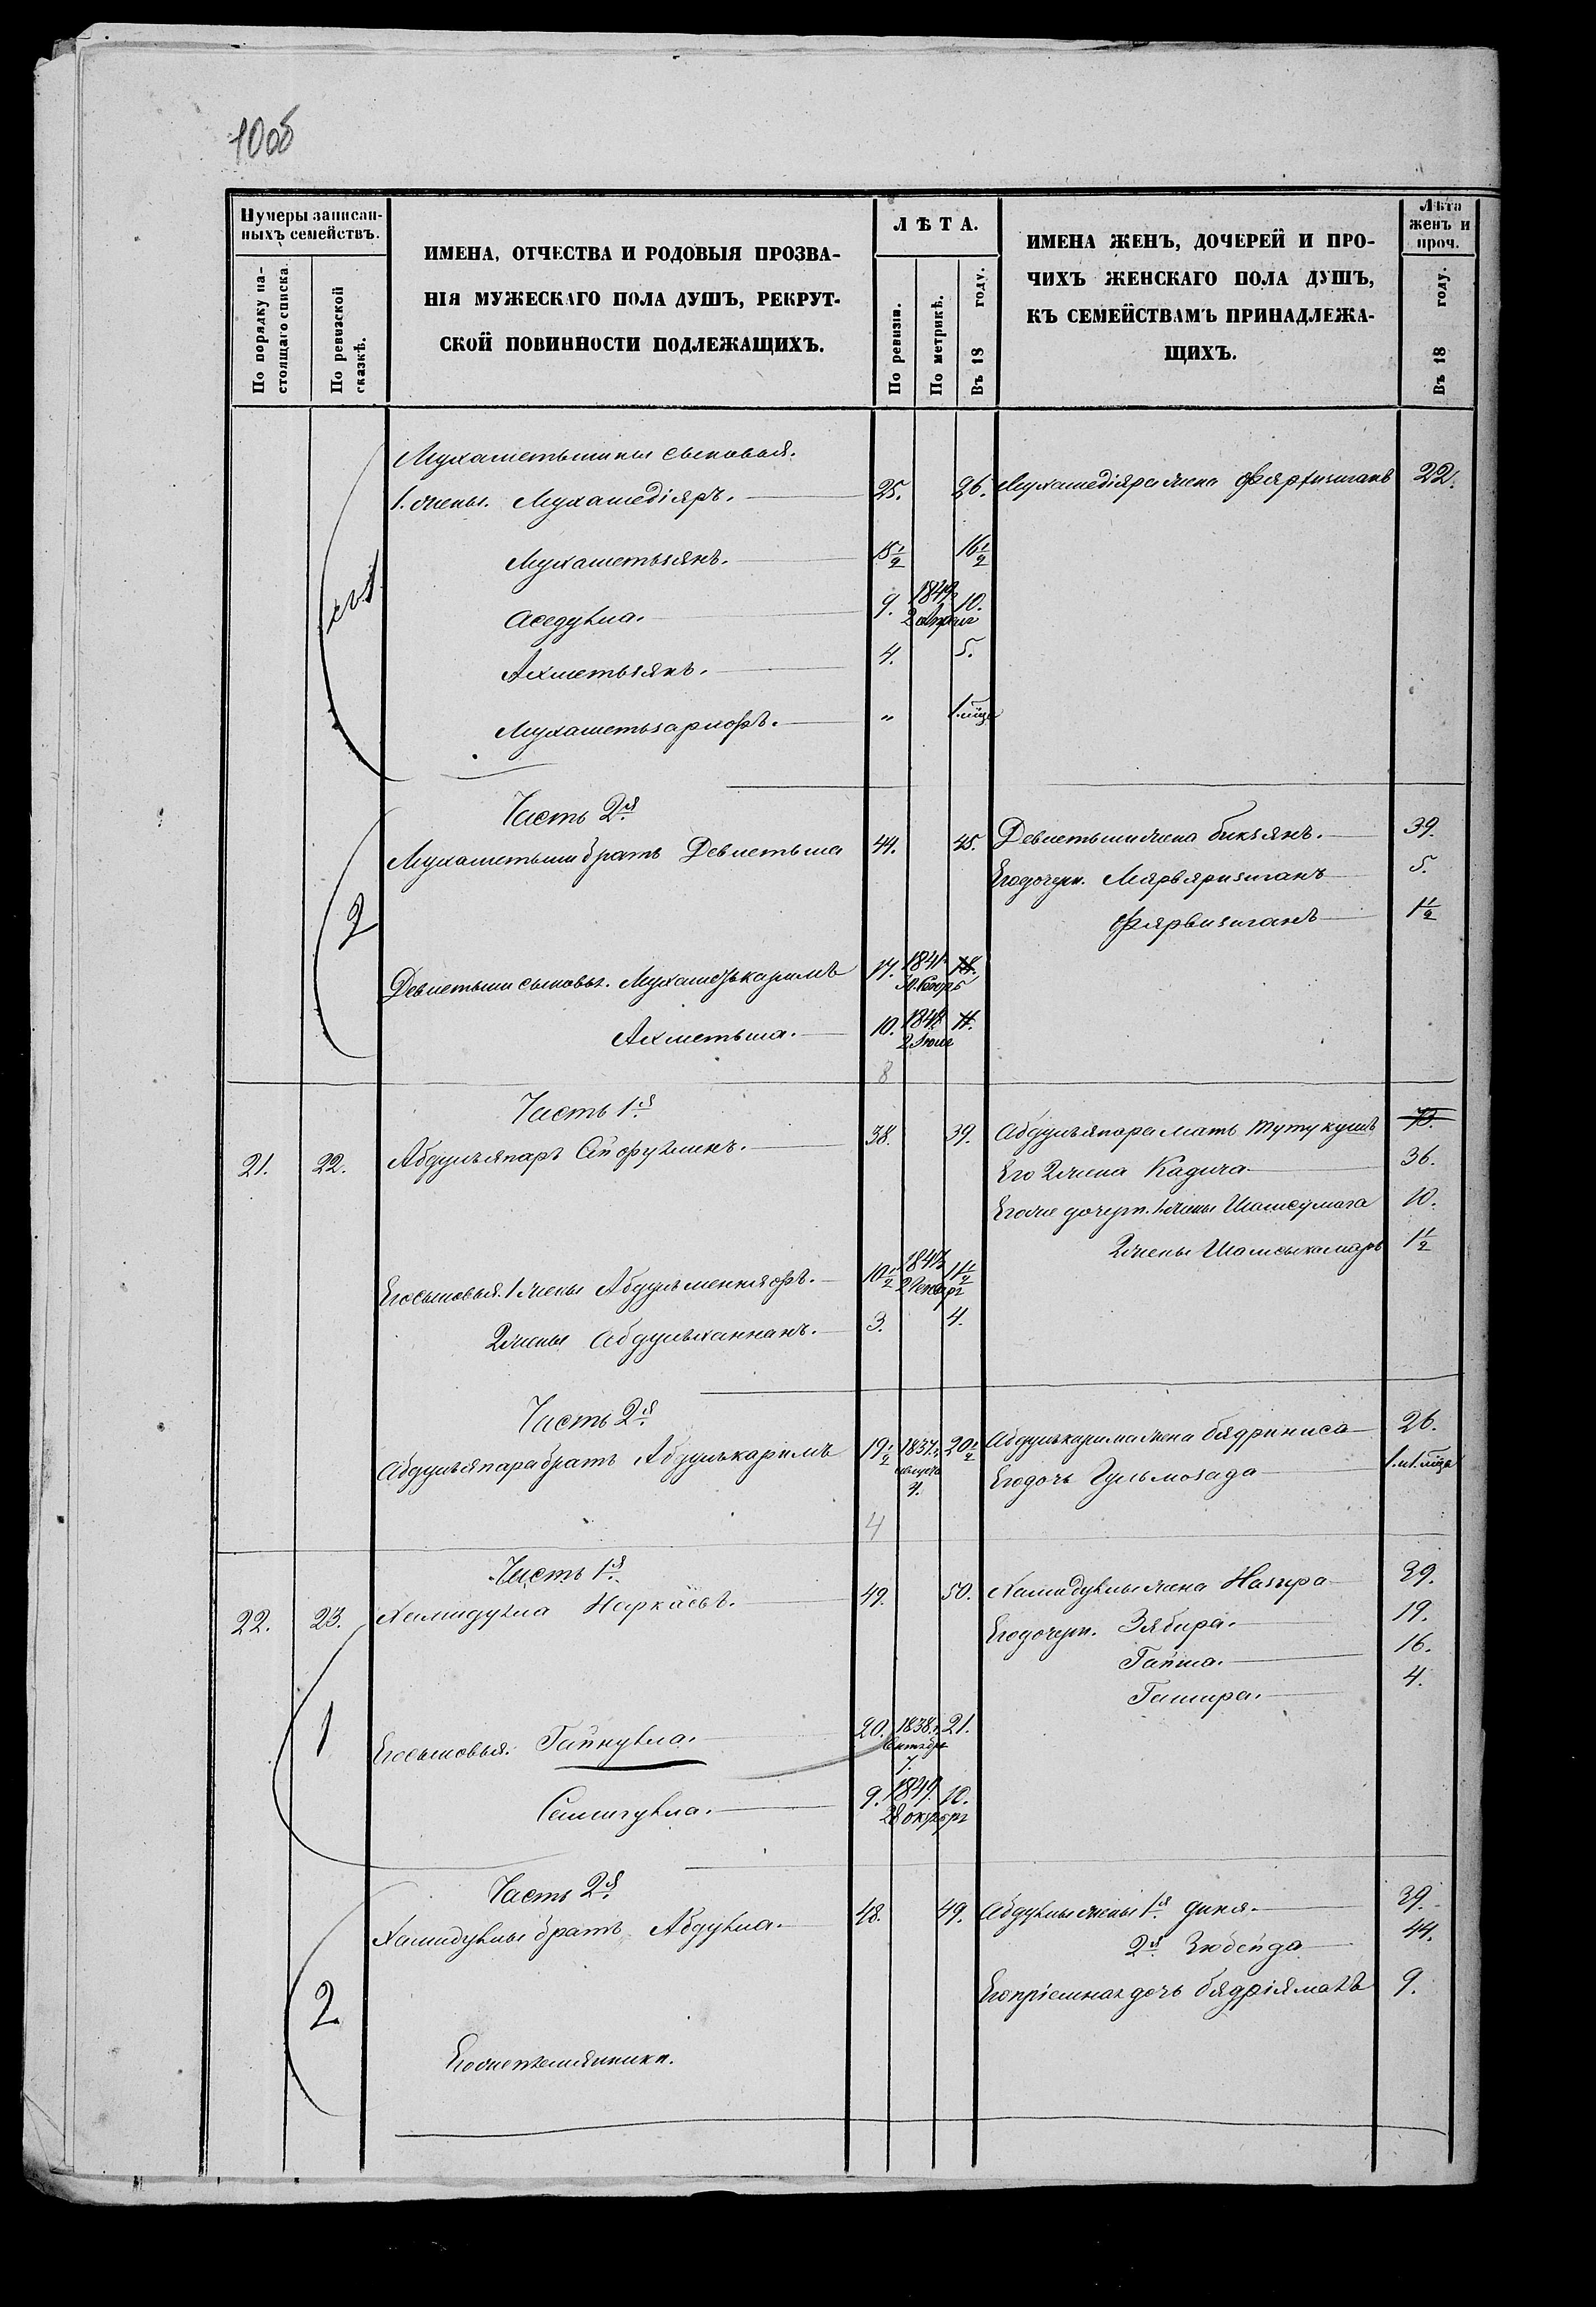 10об
Нумеры записан-
ныхъ семействъ.
По порядку на-
стоящаго списка.
По ревизской
сказкѣ.
ИМЕНА, ОТЧЕСТВА И РОДОВЫЯ ПРОЗВА-
НІЯ МУЖЕСКАГО ПОЛА ДУШЪ, РЕКРУТ-
СКОЙ ПОВИННОСТИ ПОДЛЕЖАЩИХЪ.
ЛѢТА.
По ревизіи.
По метрикѣ.
Въ 18 году.
ИМЕНА ЖЕНЪ, ДОЧЕРЕЙ И ПРО-
ЧИХЪ ЖЕНСКАГО ПОЛА ДУШЪ,
КЪ СЕМЕЙСТВАМЪ ПРИНАДЛЕЖА-
ЩИХЪ.
Лѣта
женъ и
проч.
Въ 18 году.
Мухаметьшины сыновья.
1. жены. Мухамедіяръ. 25. 26. Мухамедіяра жена 22.
Мухаметьзянъ. 15 1/2 16 1/2
Аседулла. 9. 1849 2 апрѣля 10.
Ахметьзянъ. 4. 5.
Мухаметьзарифъ. " 1. мца
Часть 2я
Мухаметьши братъ Девлетьша 44. 45. Девлетьши жена бикзянъ. 39.
Его дочери. Марвяризиганъ 5.
Фярвизиганъ 1 1/2
2
Девлетьши сыновья. Мухаметькаримъ 17. 1841 18.
Ахметьша. 10. 1848 2 Іюля 11.
8
Часть 1я
21. 22. Абдулъяпаръ 38. 39. Абдулъяпара мать Тутукушъ 73.
Его 2 жена Кадича 36.
Его же дочери. 1 жены 10.
2 жены Шамсыкамаръ 1 1/2
Его сыновья. 1 жены 10 1/2 1847 11 1/2
2 жены Абдулъханнанъ. 3. 4.
Часть 2я
Абдулъяпара братъ Абдулькаримъ 19 1/2 1837 августа 4. 20 1/2 Абдулькарима жена бядриниса 26.
Его дочь Гульмозада 1. и 1. мца
4
Часть 1я
22. 23. Хамидулла Наркаевъ. 49. 50. Хамидуллы жена Назира 39.
Его дочери. Зябира. 19.
Гайша. 16.
Гашира. 4.
1
Его сыновья. Гайнулла. 20. 1838. 7. 21.
Самигулла. 9. 1849. 28 октября 10.
Часть 2я
Хамидуллы братъ Абдулла. 48. 49. Абдуллы жены 1я диня. 39.
2я Зюбейда 44.
2
Его пріемная дочь бядріяматъ 9.
Его же племянники.